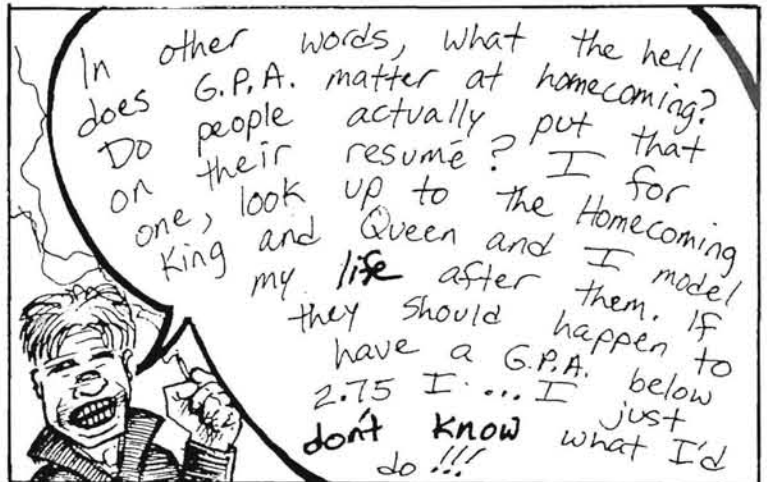 In other words, what the hell
does G.P.A. matter at homecoming?
Do people actually put that
on their resumé? I for
one, look up to the Homecoming
King and Queen and I model
my life after them. If
they should happen to
have a G.P.A. below
2.75 I....I just
don't know what I'd
do!!!